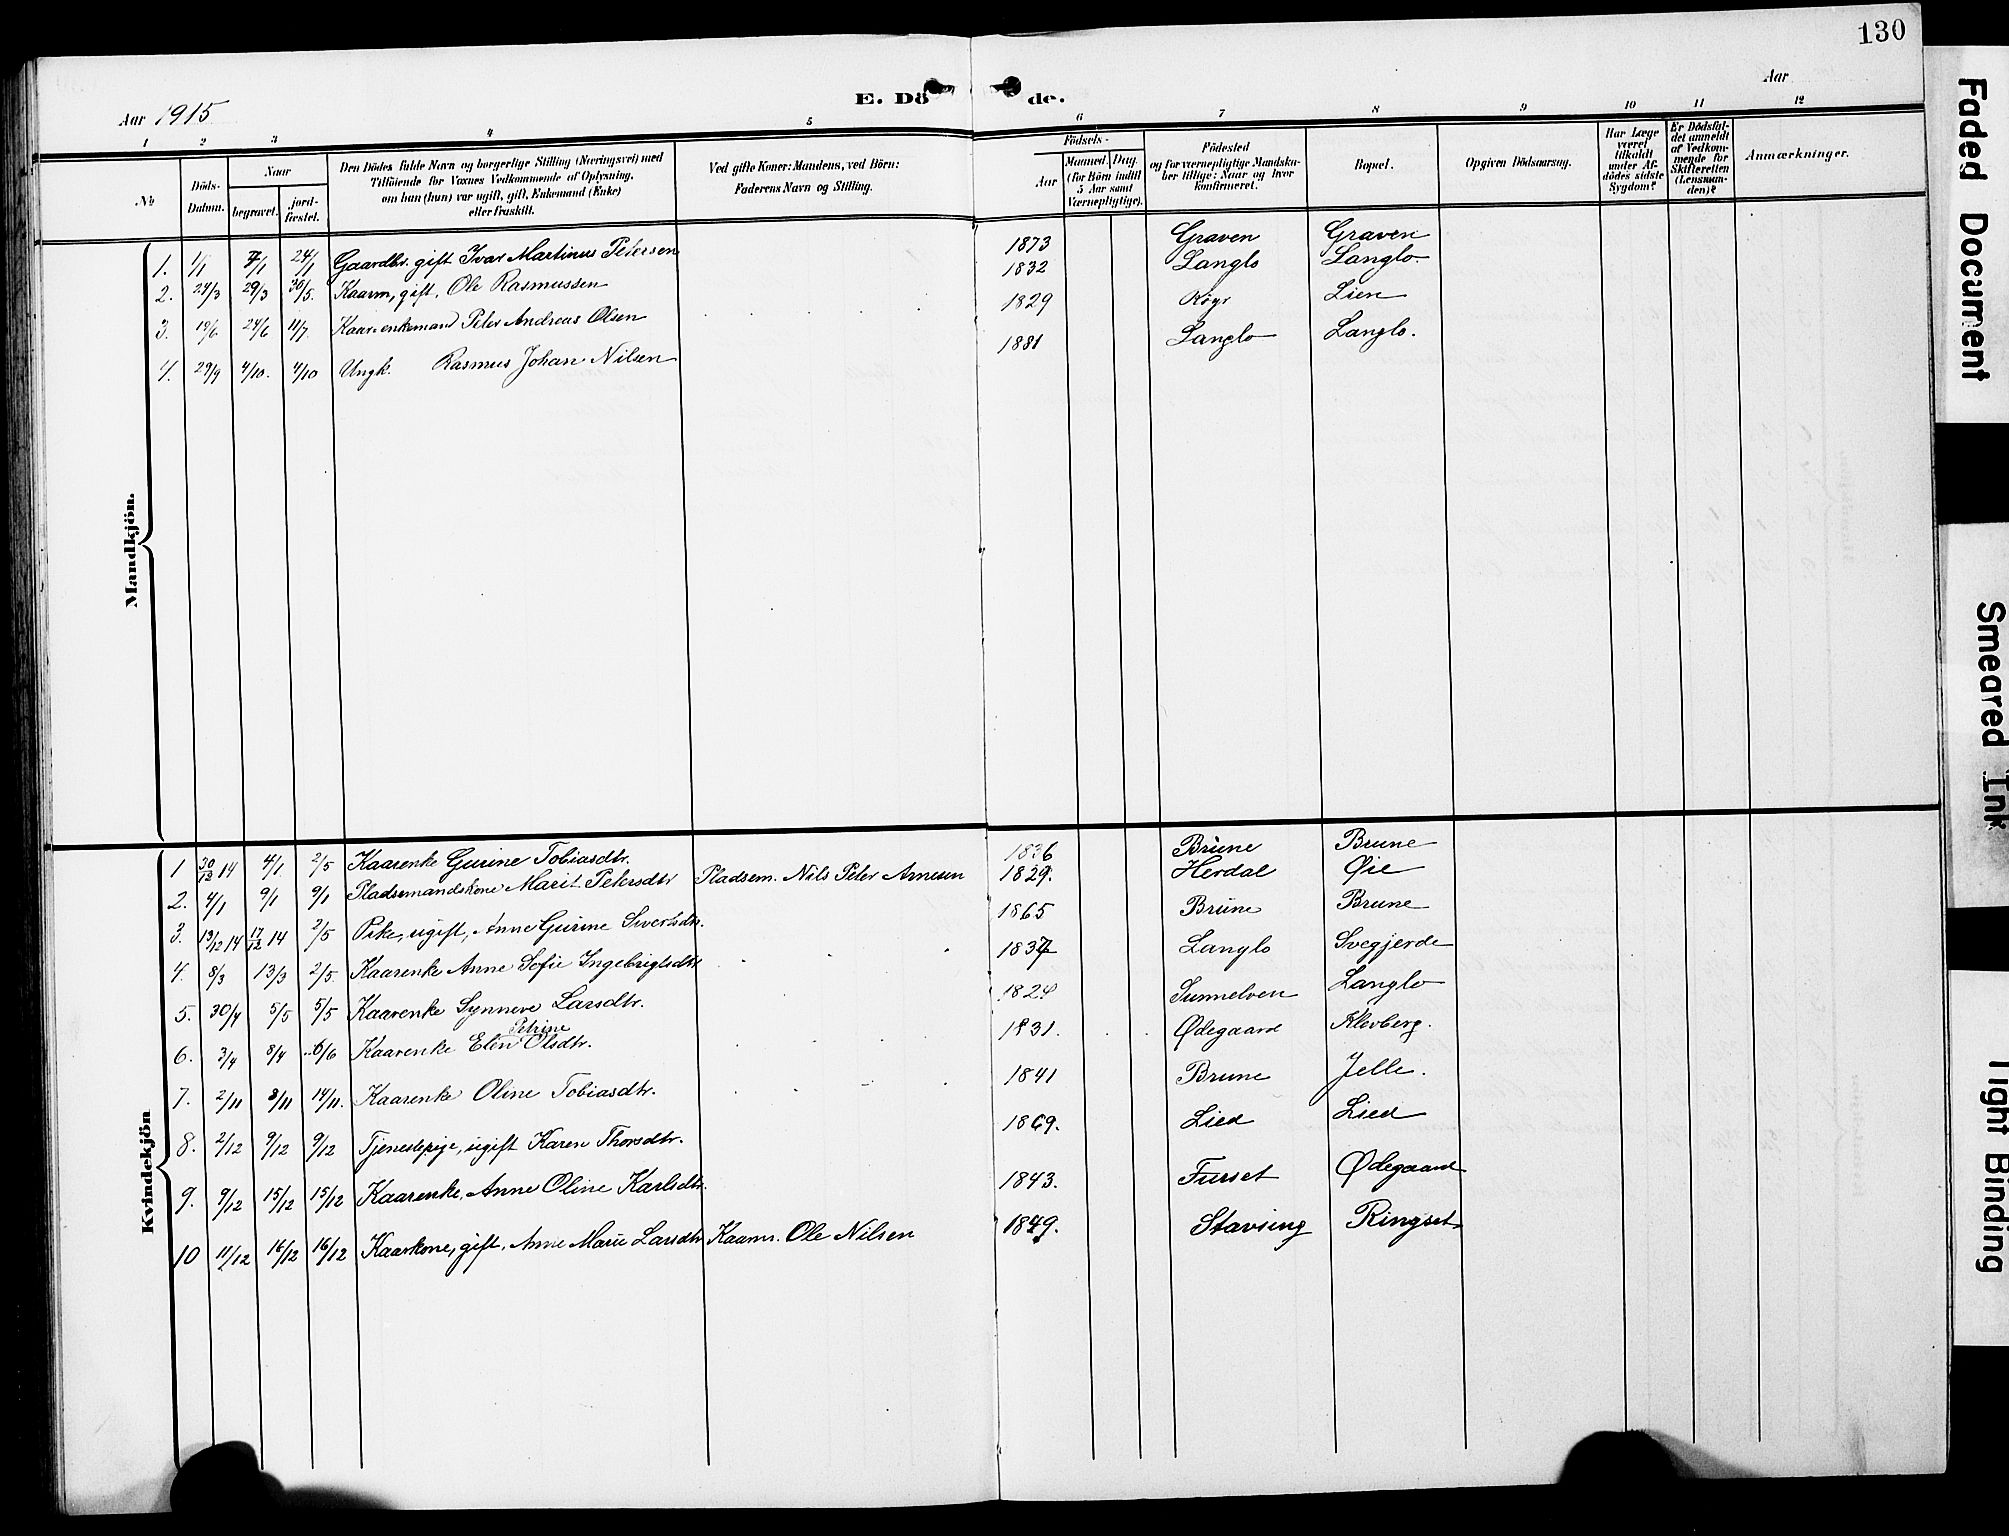 130
Aar 1915
E. Dö de.
Aar
1 2 3 4 5 6 7 8 9 10 11 12
No
Döds-Datum.
Naar
begravet.
jord-fæstet.
Den Dödes fulde Navn og borgerlige Stilling (Næringsvei) med
Tilföiende for Voxnes Vedkommende af Oplysning,
om han (hun) var ugift, gift, Enkemand (Enke)
eller fraskilt.
Ved gifte Koner: Mandens, ved Börn:
Faderens Navn og Stilling.
Födsels-
Aar
Maaned. Dag.
(for Börn indtil
5 Aar samt
Værnepligtige).
Födested
og for værnepligtige Mandska-
ber tillige: Naar og hvor
konfirmeret.
Bopæl.
Opgiven Dödsaarsag.
Har Læge
været
tilkaldt
under Af-
dödes sidste
Sygdom?
Er Dödsfal-
det anmeldt
af Vedkom-
mende for
Skifteretten
(Lensman-
den)?
Anmærkninger.
Mandkjön.
1. 1/1 7/1 24/1 Gaardbr. gift Ivar Martinus Petersen 1873 Graven Graven
2. 24/3 29/3 30/5. Kaarm, gift, Ole Rasmussen 1832 Langlo Langlo.
3. 19/6 24/6 11/7. Kaar enkemand Peter Andreas Olsen 1829 Röyr Lien
4. 29/9 4/10. 4/10 Ungk. Rasmus Johan Nilsen 1881 Langlo Langlo.
Kvindekjön
1 30/12 14 4/1 2/5 Kaarenke Gurine Tobiasdtr. 1836 Brune Brune
2. 4/1 9/1 9/1 Pladsemandskone Marit Petersdtr Pladsem. Nils Peter Arnesen 1829. Herdal Øie
3. 13/12 14 17/12 14 2/5 Pike, ugift, Anne Gurine Sivertsdtr. 1865 Brune Brune
4. 8/3 13/3 2/5. Kaarenke Anne Sofie Ingebrigtsdtr 1837 Langlo Svegjerde
5. 30/4 5/5 5/5 Kaarenke Synneve Larsdtr. 1824 Sunnelven Langlo
6. 3/4 8/4 6/6 Kaarenke Elen Petrine Olsdtr. 1831. Ødegaard Klevberg.
7. 2/11 8/11 14/11. Kaarenke Oline Tobiasdtr. 1841 Brune Jelle.
8. 2/12 9/12 9/12 Tjenestepige, ugift Karen Thorsdtr. 1869. Lied Lied
9. 9/12 15/12 15/12 Kaarenke, Anne Oline Karlsdtr. 1843. Furset Ødegaard
10 11/12 16/12 16/12 Kaarkone, gift, Anne Marie Larsdtr Kaarm. Ole Nilsen 1849. Stavseng Ringset
Faded Document
Smeared Ink
Tight Binding